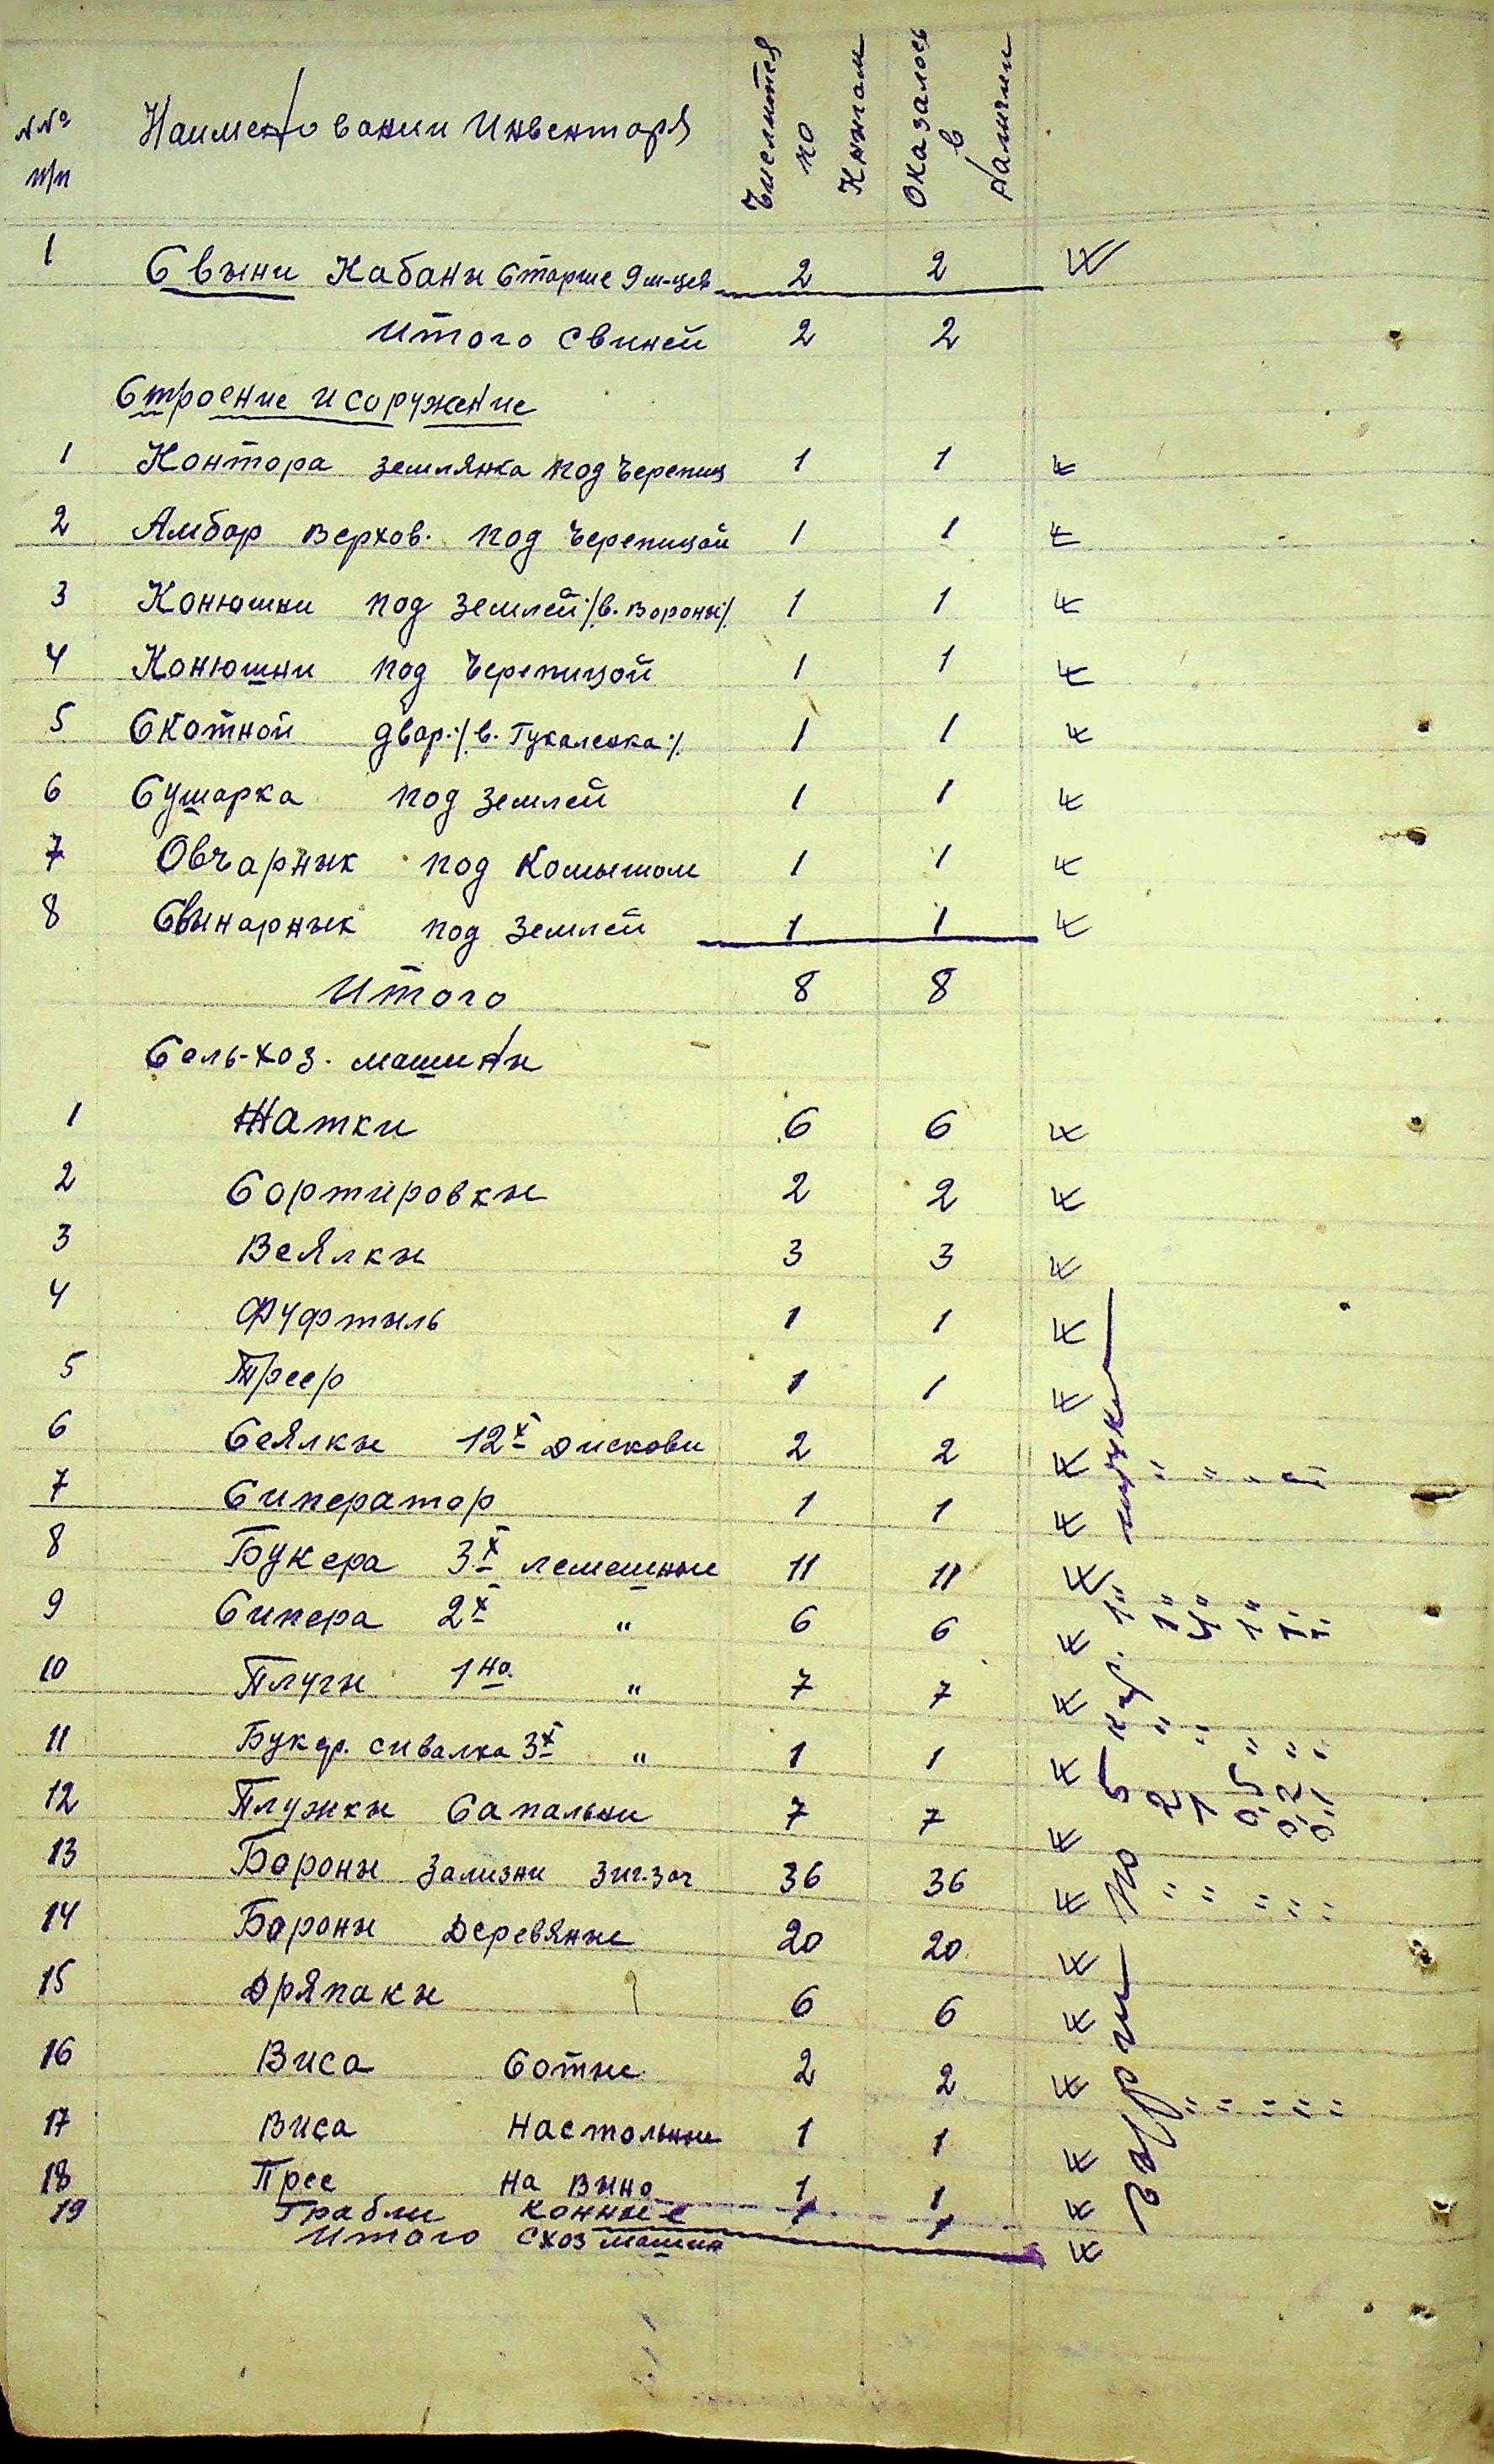 №№ п/п Наименовании Инвентаря Числится по Книгам Оказалось в Наличии
1 Свыни Кабаны Старше 9 м-цев 2 2
Итого свиней 2 2
Строение и соружение
1 Контора землянка под Черепиц 1 1
2 Амбар Верхов. под Черепицой 1 1
3 Конюшни под землей ./в. Вороны/. 1 1
4 Конюшни под Черепицой 1 1
5 Скотной двор ./в. Гукаленка/. 1 1
6 Сушарка под землей 1 1
7 Овчарнык под Комышом 1 1
8 Свынарнык под землей 1 1
Итого 8 8
Сель-хоз. машины
1 Жатки 6 6
2 Сортировкы 2 2
3 Веялкы 3 3
4 Фуфтыль 1 1
5 Треер 1 1
6 Сеялкы 12х Дискови 2 2
7 Сиператор 1 1
8 Букера 3х лемешные 11 11
9 Сипера 2х " 6 6
10 Плугы 1но " 7 7
11 Букер. сивалка 3х " 1 1
12 Плужкы Сапальни 7 7
13 Бороны Зализни зиг.заг 36 36
14 Бороны Деревяные 20 20
15 Дряпакы 6 6
16 Виса Сотые 2 2
17 Виса Настольные 1 1
18 Прес на Выно 1 1
19 Грабли конные 1 1
Итого схоз машин